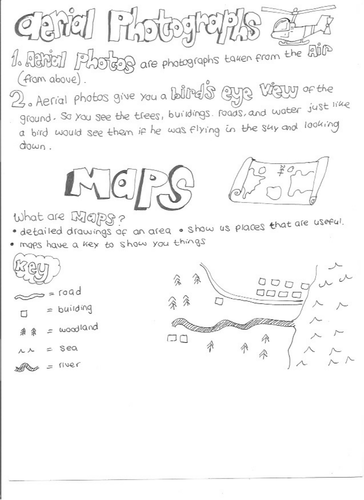 aerial Photographs
1. Aerial Photos are photographs taken from the air
(from above).
2. Aerial photos give you a bird's eye view of the
ground. So you see the trees, buildings, roads, and water just like
a bird would see them if he was flying in the sky and looking
down.
Maps
What are Maps?
• detailed drawings of an area • show us places that are useful.
• maps have a key to show you things
Key
= road
= building
= woodland
= sea
= river